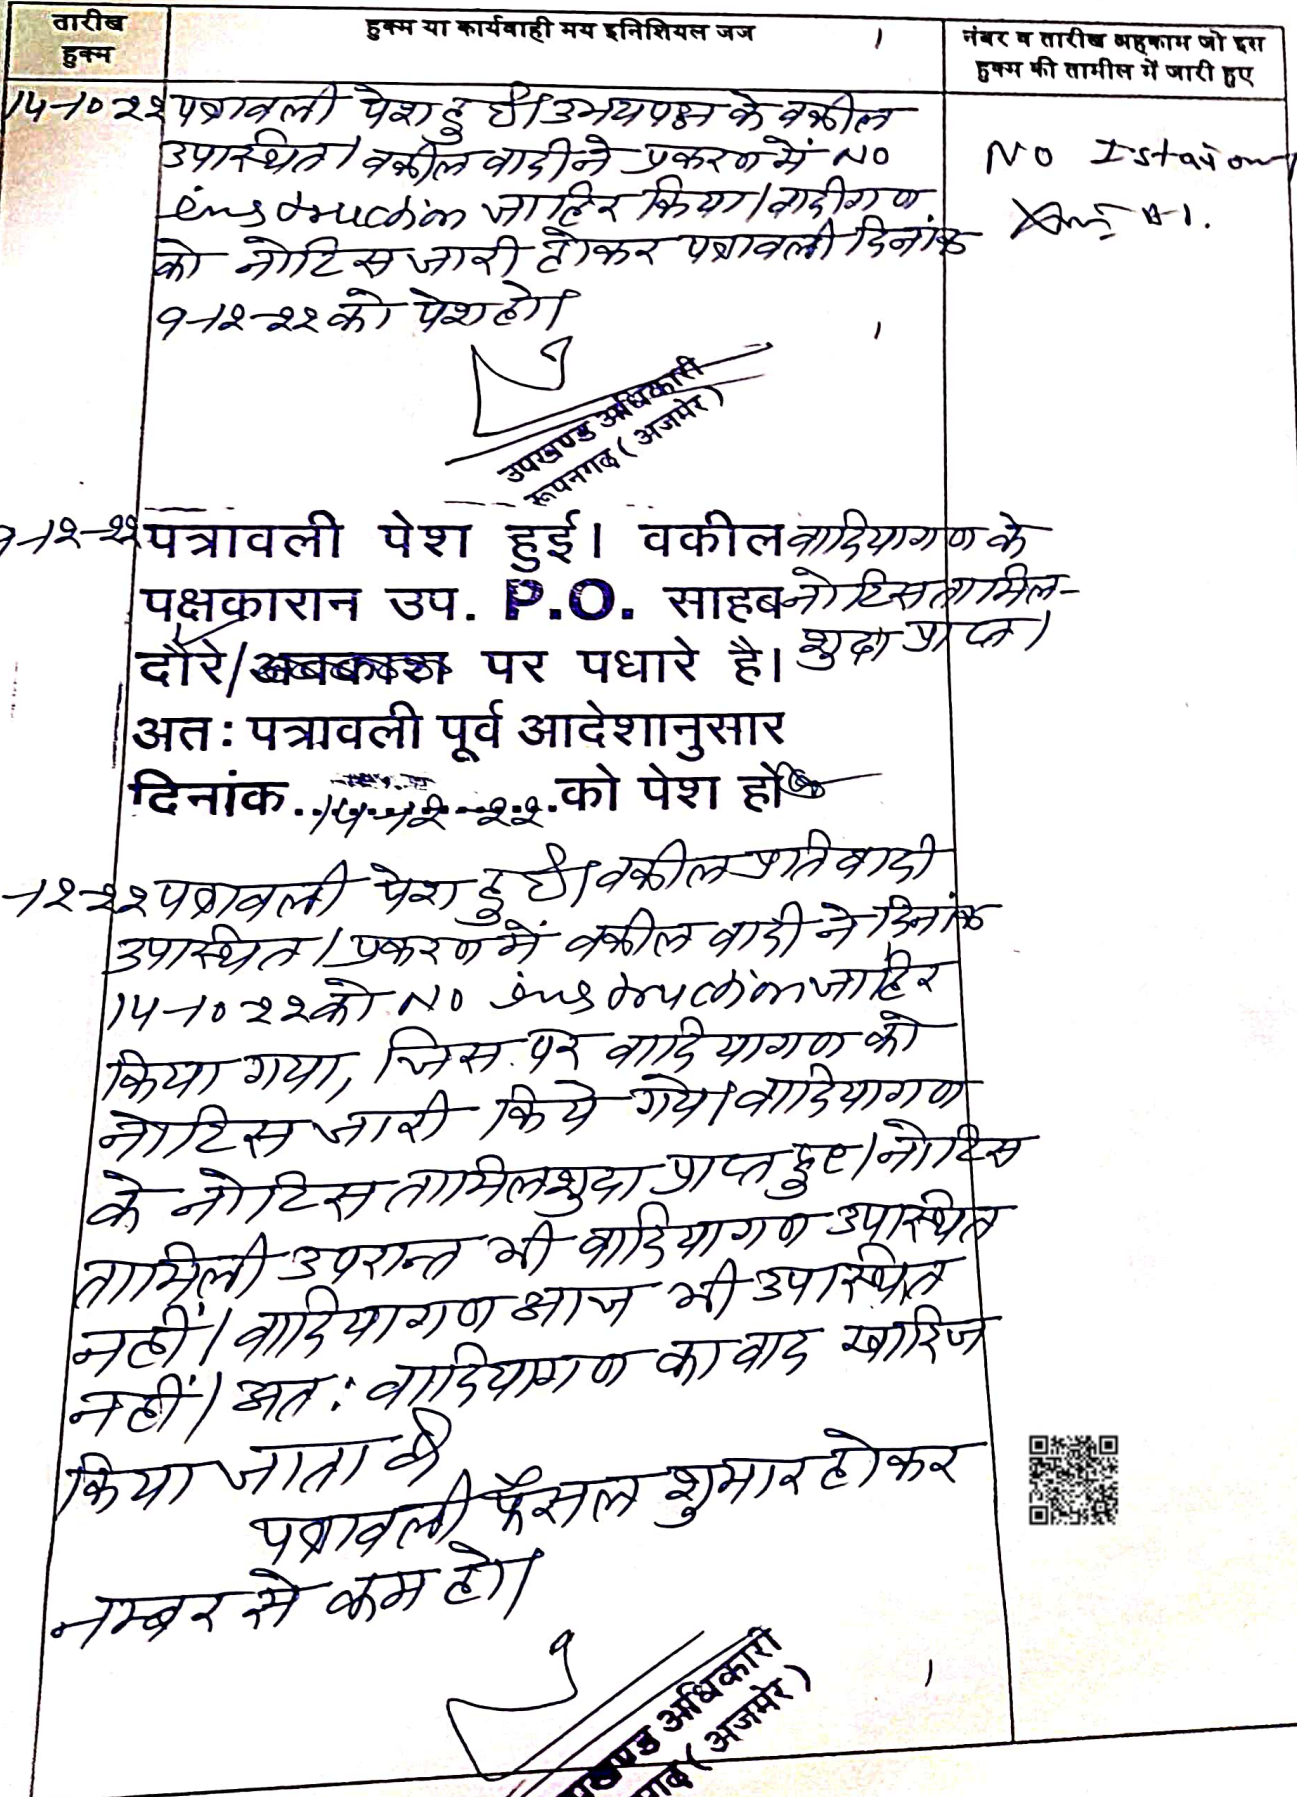 तारीख
हुक्म
हुक्म या कार्यवाही मय इनिशियल जज
नंबर व तारीख अहकाम जो इस
हुक्म की तामील में जारी हुए
14-10-22 पत्रावली पेश हुई। उभयपक्ष के वकील
उपस्थित। वकील वादी ने प्रकरण में NO
instruction जाहिर किया। वादीगण
को नोटिस जारी होकर पत्रावली दिनांक
9-12-22 को पेश हो।
NO
उपखण्ड अधिकारी
रूपनगढ (अजमेर)
9-12-22 पत्रावली पेश हुई। वकील वादियागण के
पक्षकारान उप. P.O. साहब नोटिस तामिल-
दौरे/अवकाश पर पधारे है। शुदा प्राप्त।
अतः पत्रावली पूर्व आदेशानुसार
दिनांक..14-12-22..को पेश हो
-12-22 पत्रावली पेश हुई। वकील प्रतिवादी
उपस्थित। प्रकरण में वकील वादी ने दिनांक
14-10-22 को NO instruction जाहिर
किया गया, जिस पर वादियागण को
नोटिस जारी किये गये। वादियागण
के नोटिस तामिलशुदा प्राप्त हुए। नोटिस
तामिली उपरान्त भी वादियागण उपस्थित
नहीं। वादियागण आज भी उपस्थित
नहीं। अतः वादियागण का वाद खारिज
किया जाता है
पत्रावली फैसल शुमार होकर
नम्बर से कम हो।
खण्ड अधिकारी
गढ (अजमेर)